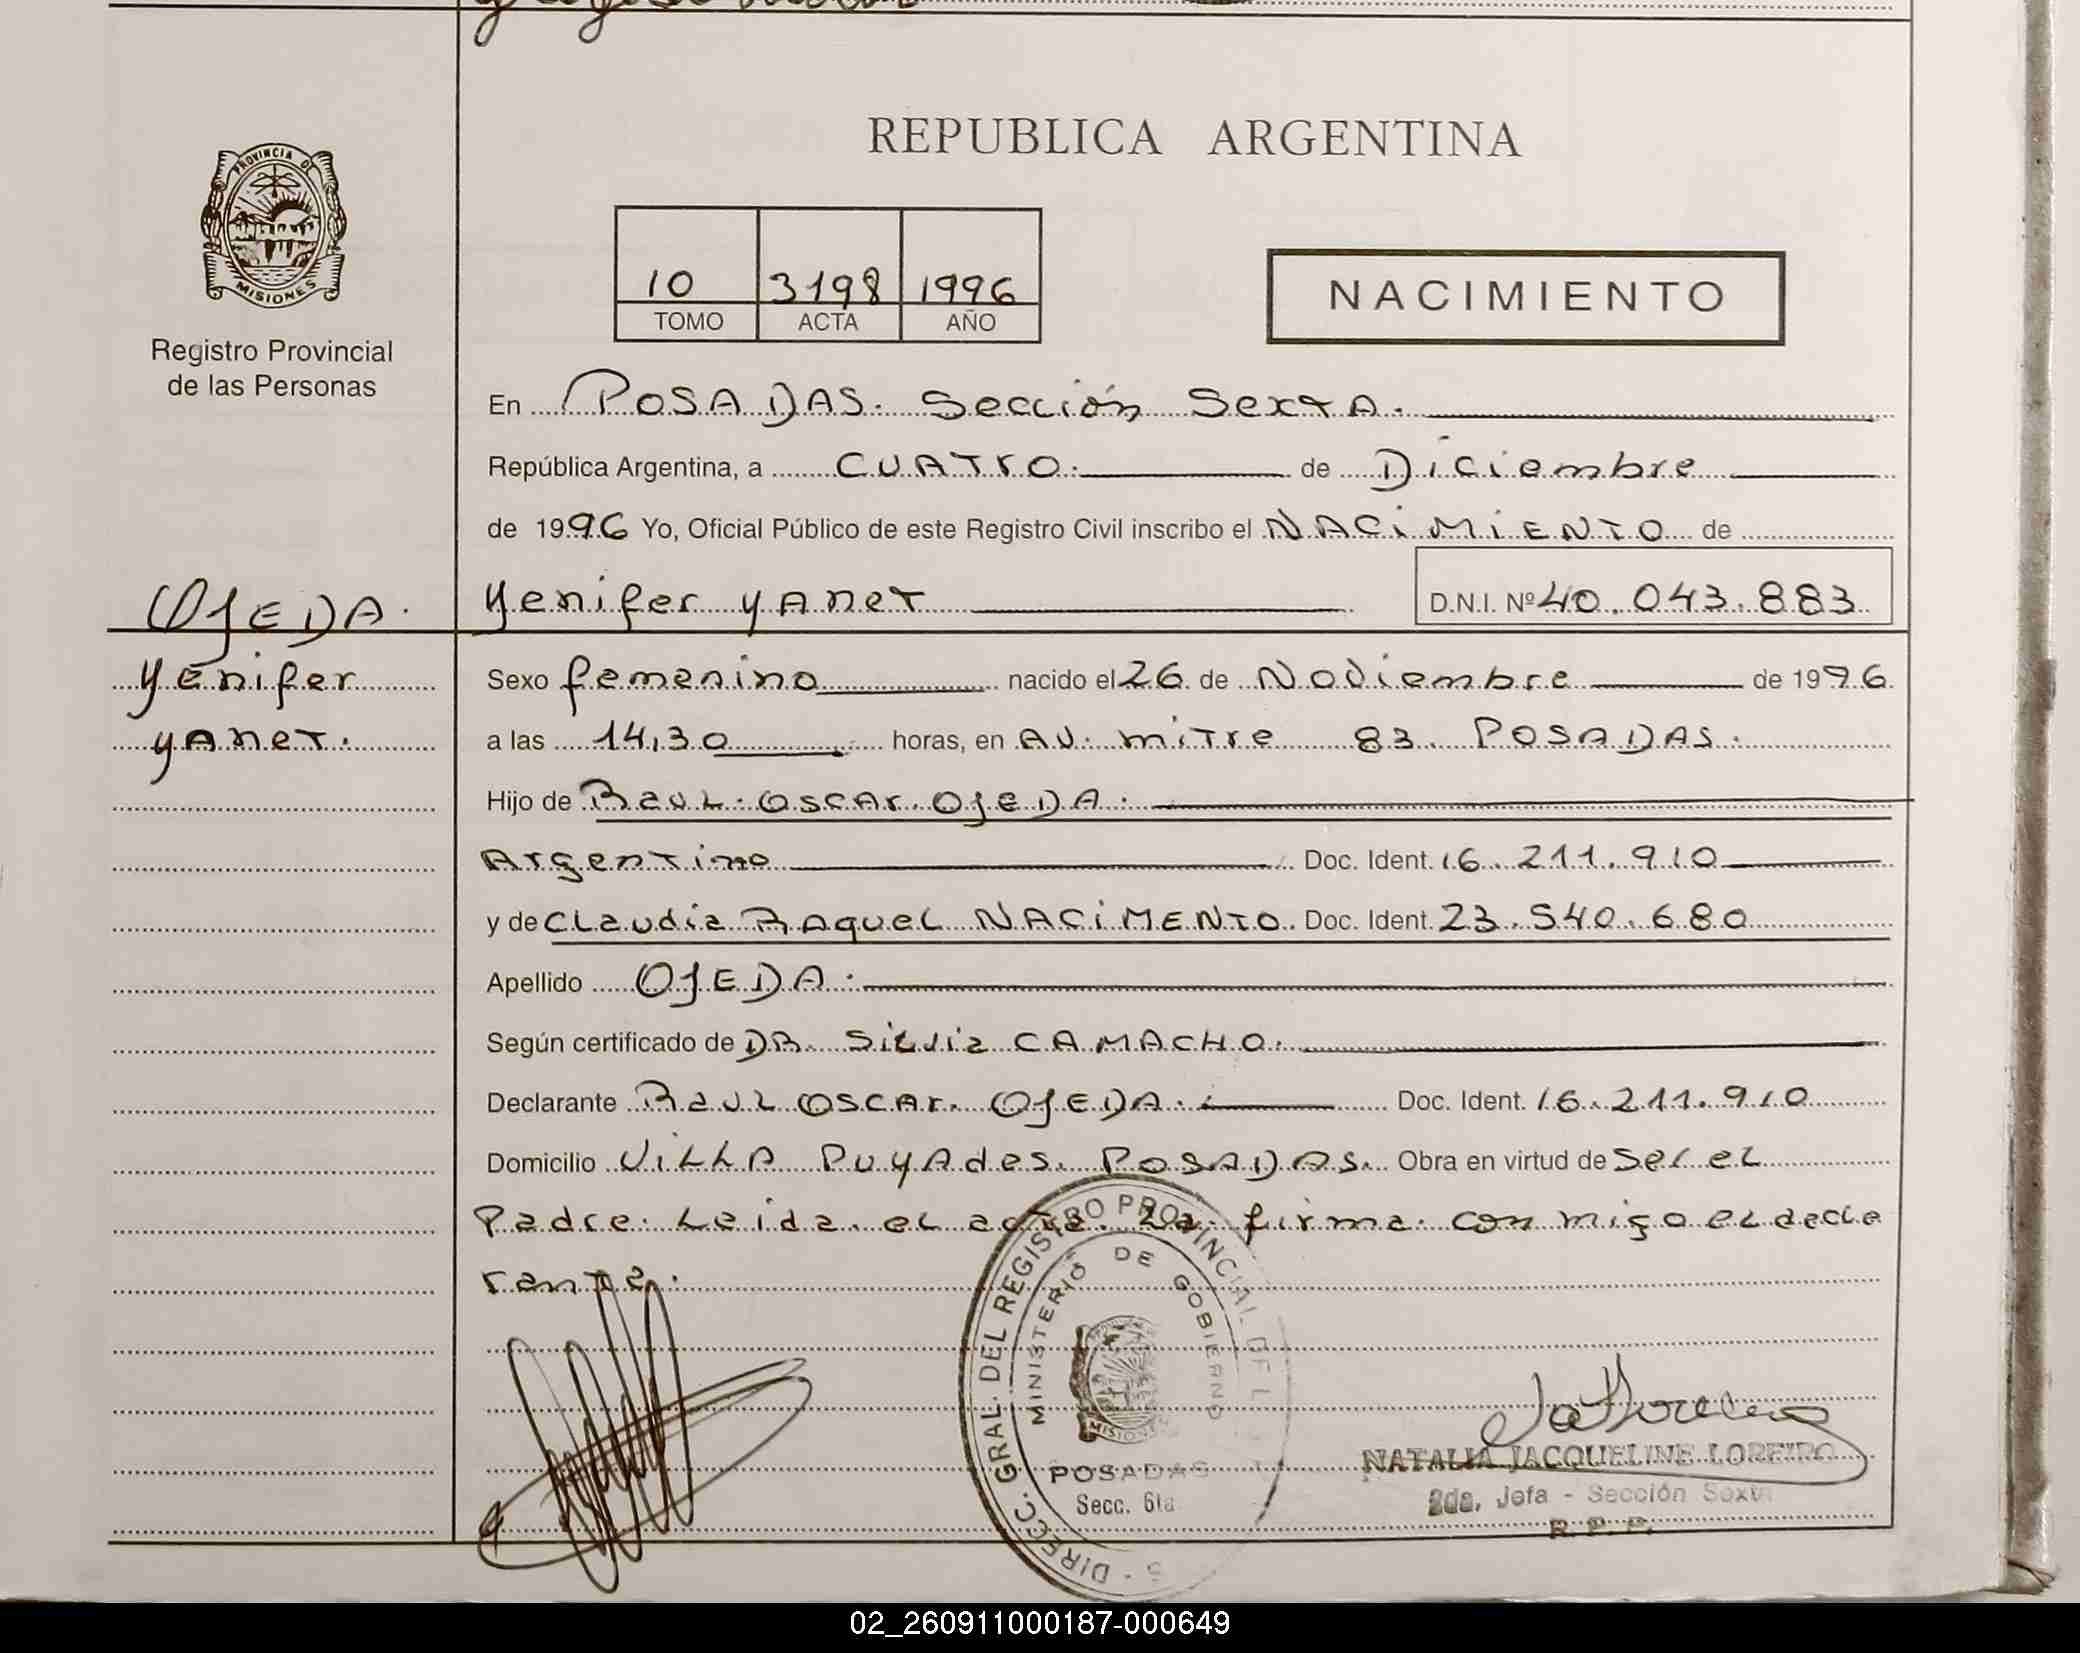 REPUBLICA ARGENTINA
PROVINCIA DE
MISIONES
Registro Provincial
de las Personas
10 3198 1996
TOMO ACTA AÑO
NACIMIENTO
En POSADAS. Sección Sexta.
República Argentina, a CUATRO. de Diciembre
de 1996 Yo, Oficial Público de este Registro Civil inscribo el NACIMIENTO de
OJEDA. Yenifer Yanet D.N.I. Nº 40.043.883
Yenifer
Yanet.
Sexo femenino nacido el 26 de Noviembre de 1996
a las 14,30 horas, en AV. mitre 83. POSADAS.
Hijo de Raul Oscar OJEDA.
Argentino Doc. Ident. 16.211.910
y de Claudia Raquel NACIMENTO. Doc. Ident. 23.540.680
Apellido OJEDA.
Según certificado de DR. Silvia CAMACHO.
Declarante Raul Oscar OJEDA. Doc. Ident. 16.211.910
Domicilio Villa Puyades. POSADAS. Obra en virtud de ser el
Padre. Leida el acta. La firma con migo el decla
rante.
DIRECC. GRAL. DEL REGISTRO PROVINCIAL DE L
MINISTERIO DE GOBIERNO
MISIONES
POSADAS
Secc. 6ta
NATALIA JACQUELINE LOREIRO
2da. Jefa - Sección Sexta
R. P. P.
02_260911000187-000649